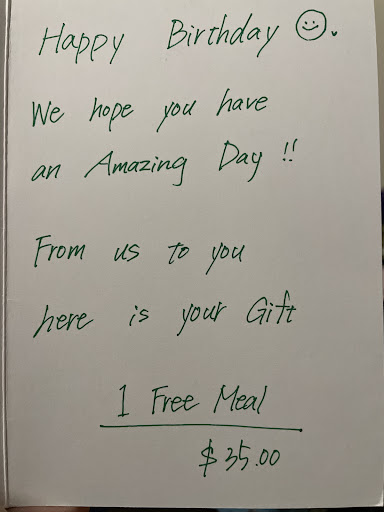 Happy Birthday
We hope you have
an Amazing Day !!
From us to you
here is your Gift
1 Free Meal
$35.00